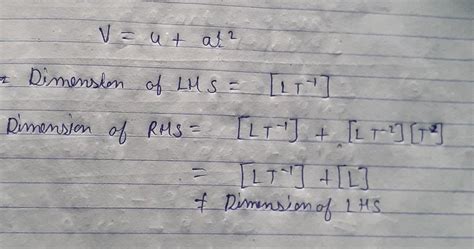 V = u + at²
Dimension of LHS = [LT⁻¹]
Dimension of RHS = [LT⁻¹] + [LT⁻²][T²]
= [LT⁻¹] + [L]
≠ Dimension of LHS